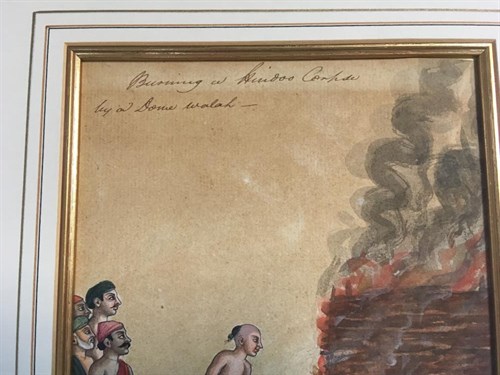 Burning a Hindoo Corpse
by a Dome walah —